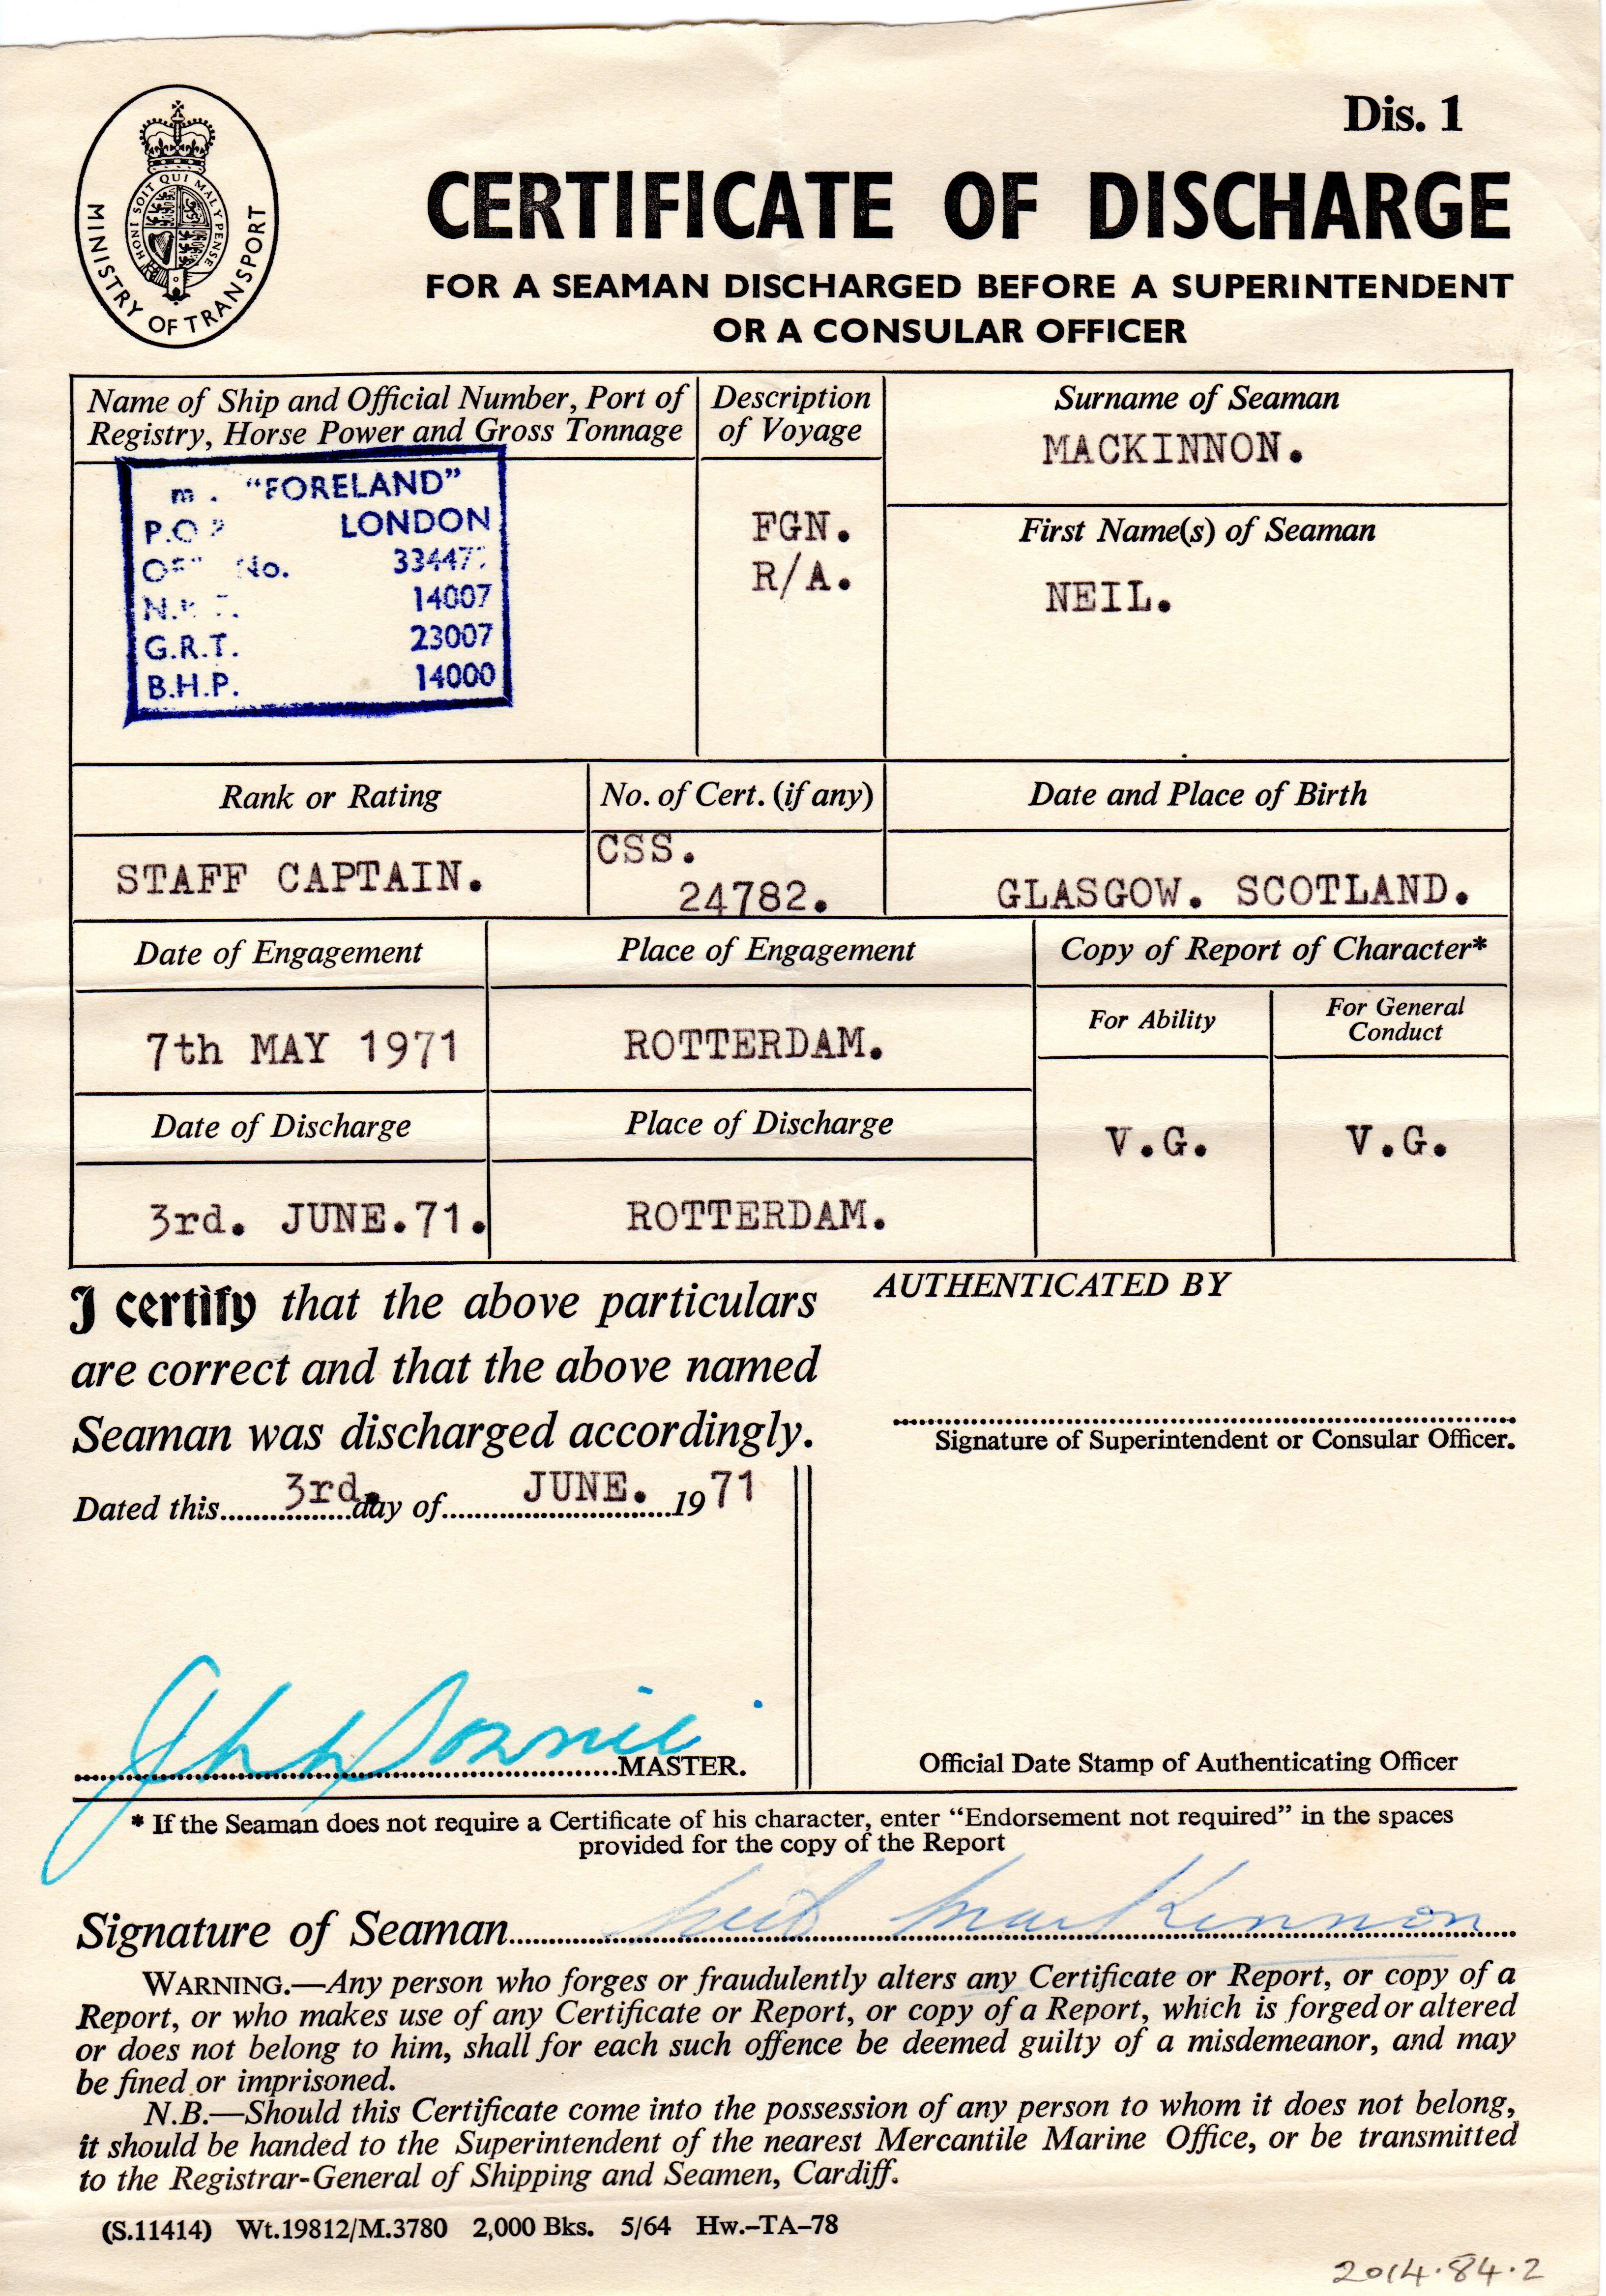 Dis. 1
HONI SOIT QUI MAL Y PENSE
MINISTRY OF TRANSPORT
CERTIFICATE OF DISCHARGE
FOR A SEAMAN DISCHARGED BEFORE A SUPERINTENDENT
OR A CONSULAR OFFICER
Name of Ship and Official Number, Port of
Registry, Horse Power and Gross Tonnage
Description
of Voyage
Surname of Seaman
MACKINNON.
"FORELAND"
LONDON
No.
14007
G.R.T. 23007
B.H.P. 14000
FGN.
R/A.
First Name(s) of Seaman
NEIL.
Rank or Rating
No. of Cert. (if any)
Date and Place of Birth
STAFF CAPTAIN.
CSS.
24782.
GLASGOW. SCOTLAND.
Date of Engagement
Place of Engagement
Copy of Report of Character*
For Ability
For General
Conduct
7th MAY 1971
ROTTERDAM.
Date of Discharge
Place of Discharge
V.G.
V.G.
3rd. JUNE.71.
ROTTERDAM.
I certify that the above particulars
are correct and that the above named
Seaman was discharged accordingly.
Dated this 3rd. day of JUNE. 1971
AUTHENTICATED BY
Signature of Superintendent or Consular Officer.
MASTER.
Official Date Stamp of Authenticating Officer
* If the Seaman does not require a Certificate of his character, enter "Endorsement not required" in the spaces
provided for the copy of the Report
Signature of Seaman Neil MacKinnon
WARNING.—Any person who forges or fraudulently alters any Certificate or Report, or copy of a
Report, or who makes use of any Certificate or Report, or copy of a Report, which is forged or altered
or does not belong to him, shall for each such offence be deemed guilty of a misdemeanor, and may
be fined or imprisoned.
N.B.—Should this Certificate come into the possession of any person to whom it does not belong,
it should be handed to the Superintendent of the nearest Mercantile Marine Office, or be transmitted
to the Registrar-General of Shipping and Seamen, Cardiff.
(S.11414) Wt.19812/M.3780 2,000 Bks. 5/64 Hw.–TA–78
2014.84.2